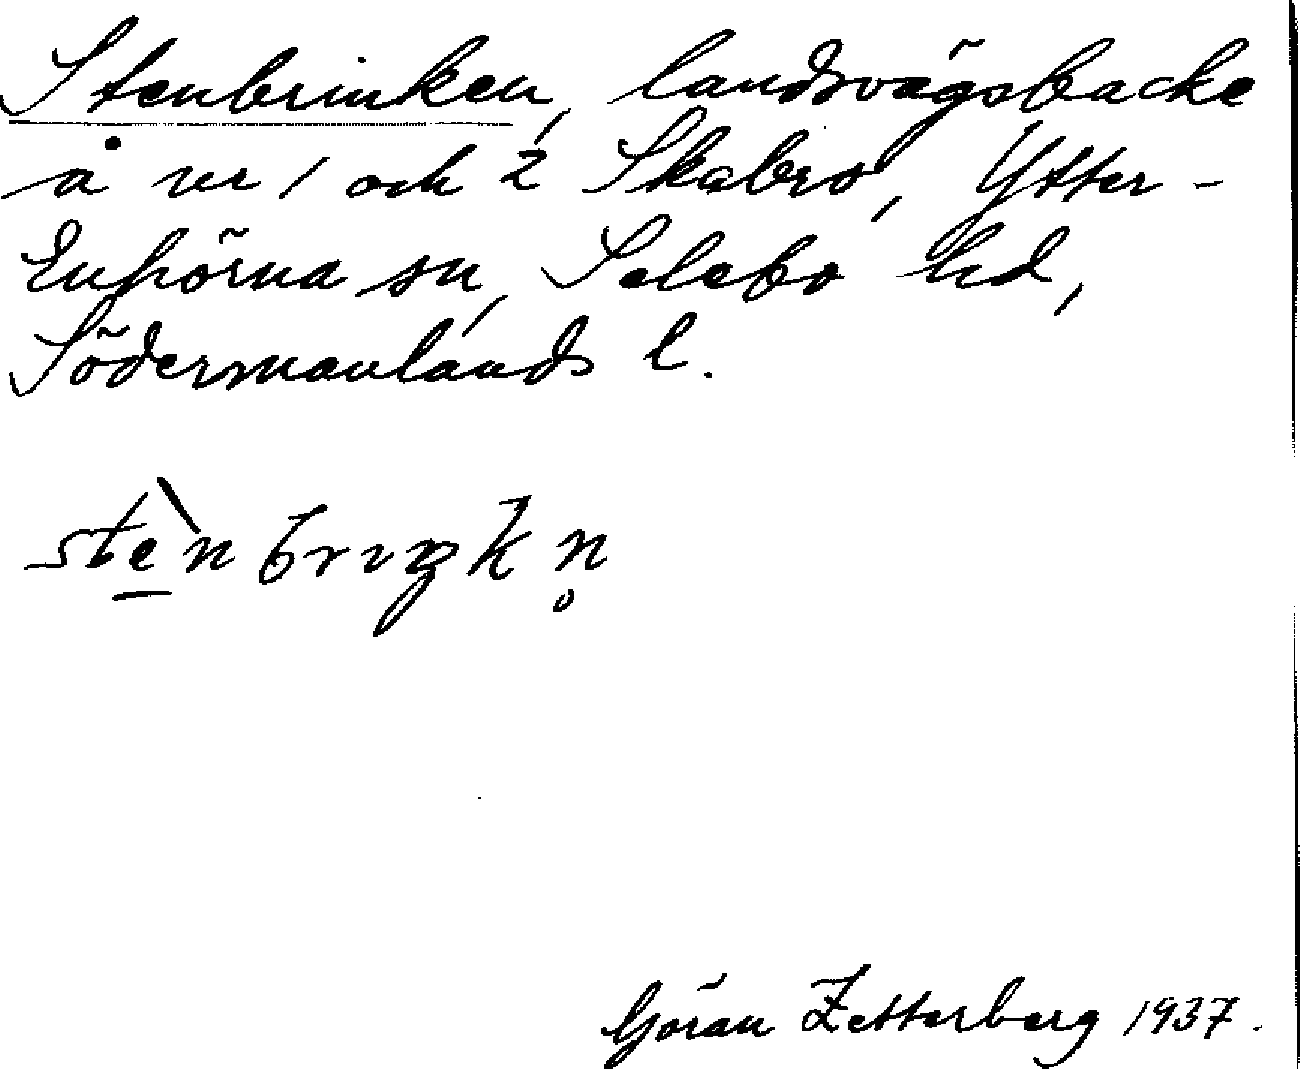 Stenbrinken, landsvägsbacke
å nr 1 och 2 Skabro, Ytter-
Enhörna sn, Selebo hd,
Södermanlands l.
stè̲nbrıŋkn̥
Göran Zetterberg 1937.